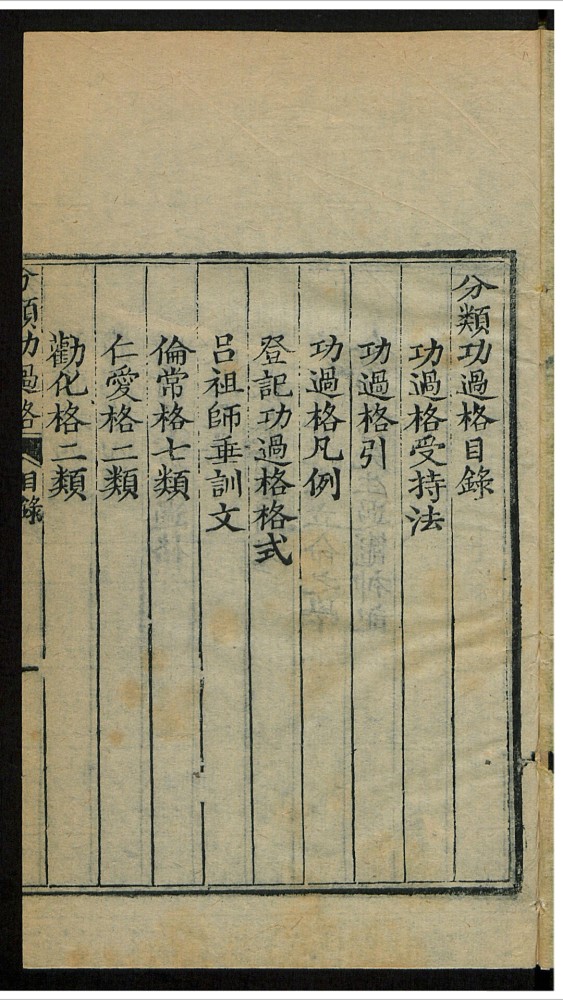 分類功過格目錄
功過格受持法
功過格引
功過格凡例
登記功過格格式
呂祖師垂訓文
倫常格七類
仁愛格二類
勸化格二類
分類功過格 目錄 一